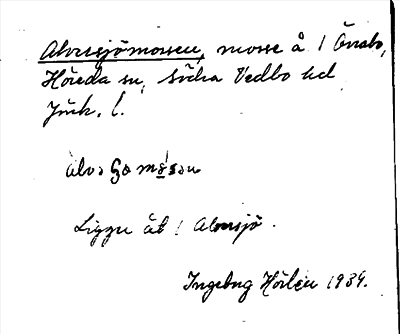 Alvasjömossen, mosse å 1 Önsbo,
Höreda sn, Södra Vedbo hd
Jönk. l.
alva ʃo mosan
Ligger åt ! Alvasjö.
Ingeborg Hörlén 1939.